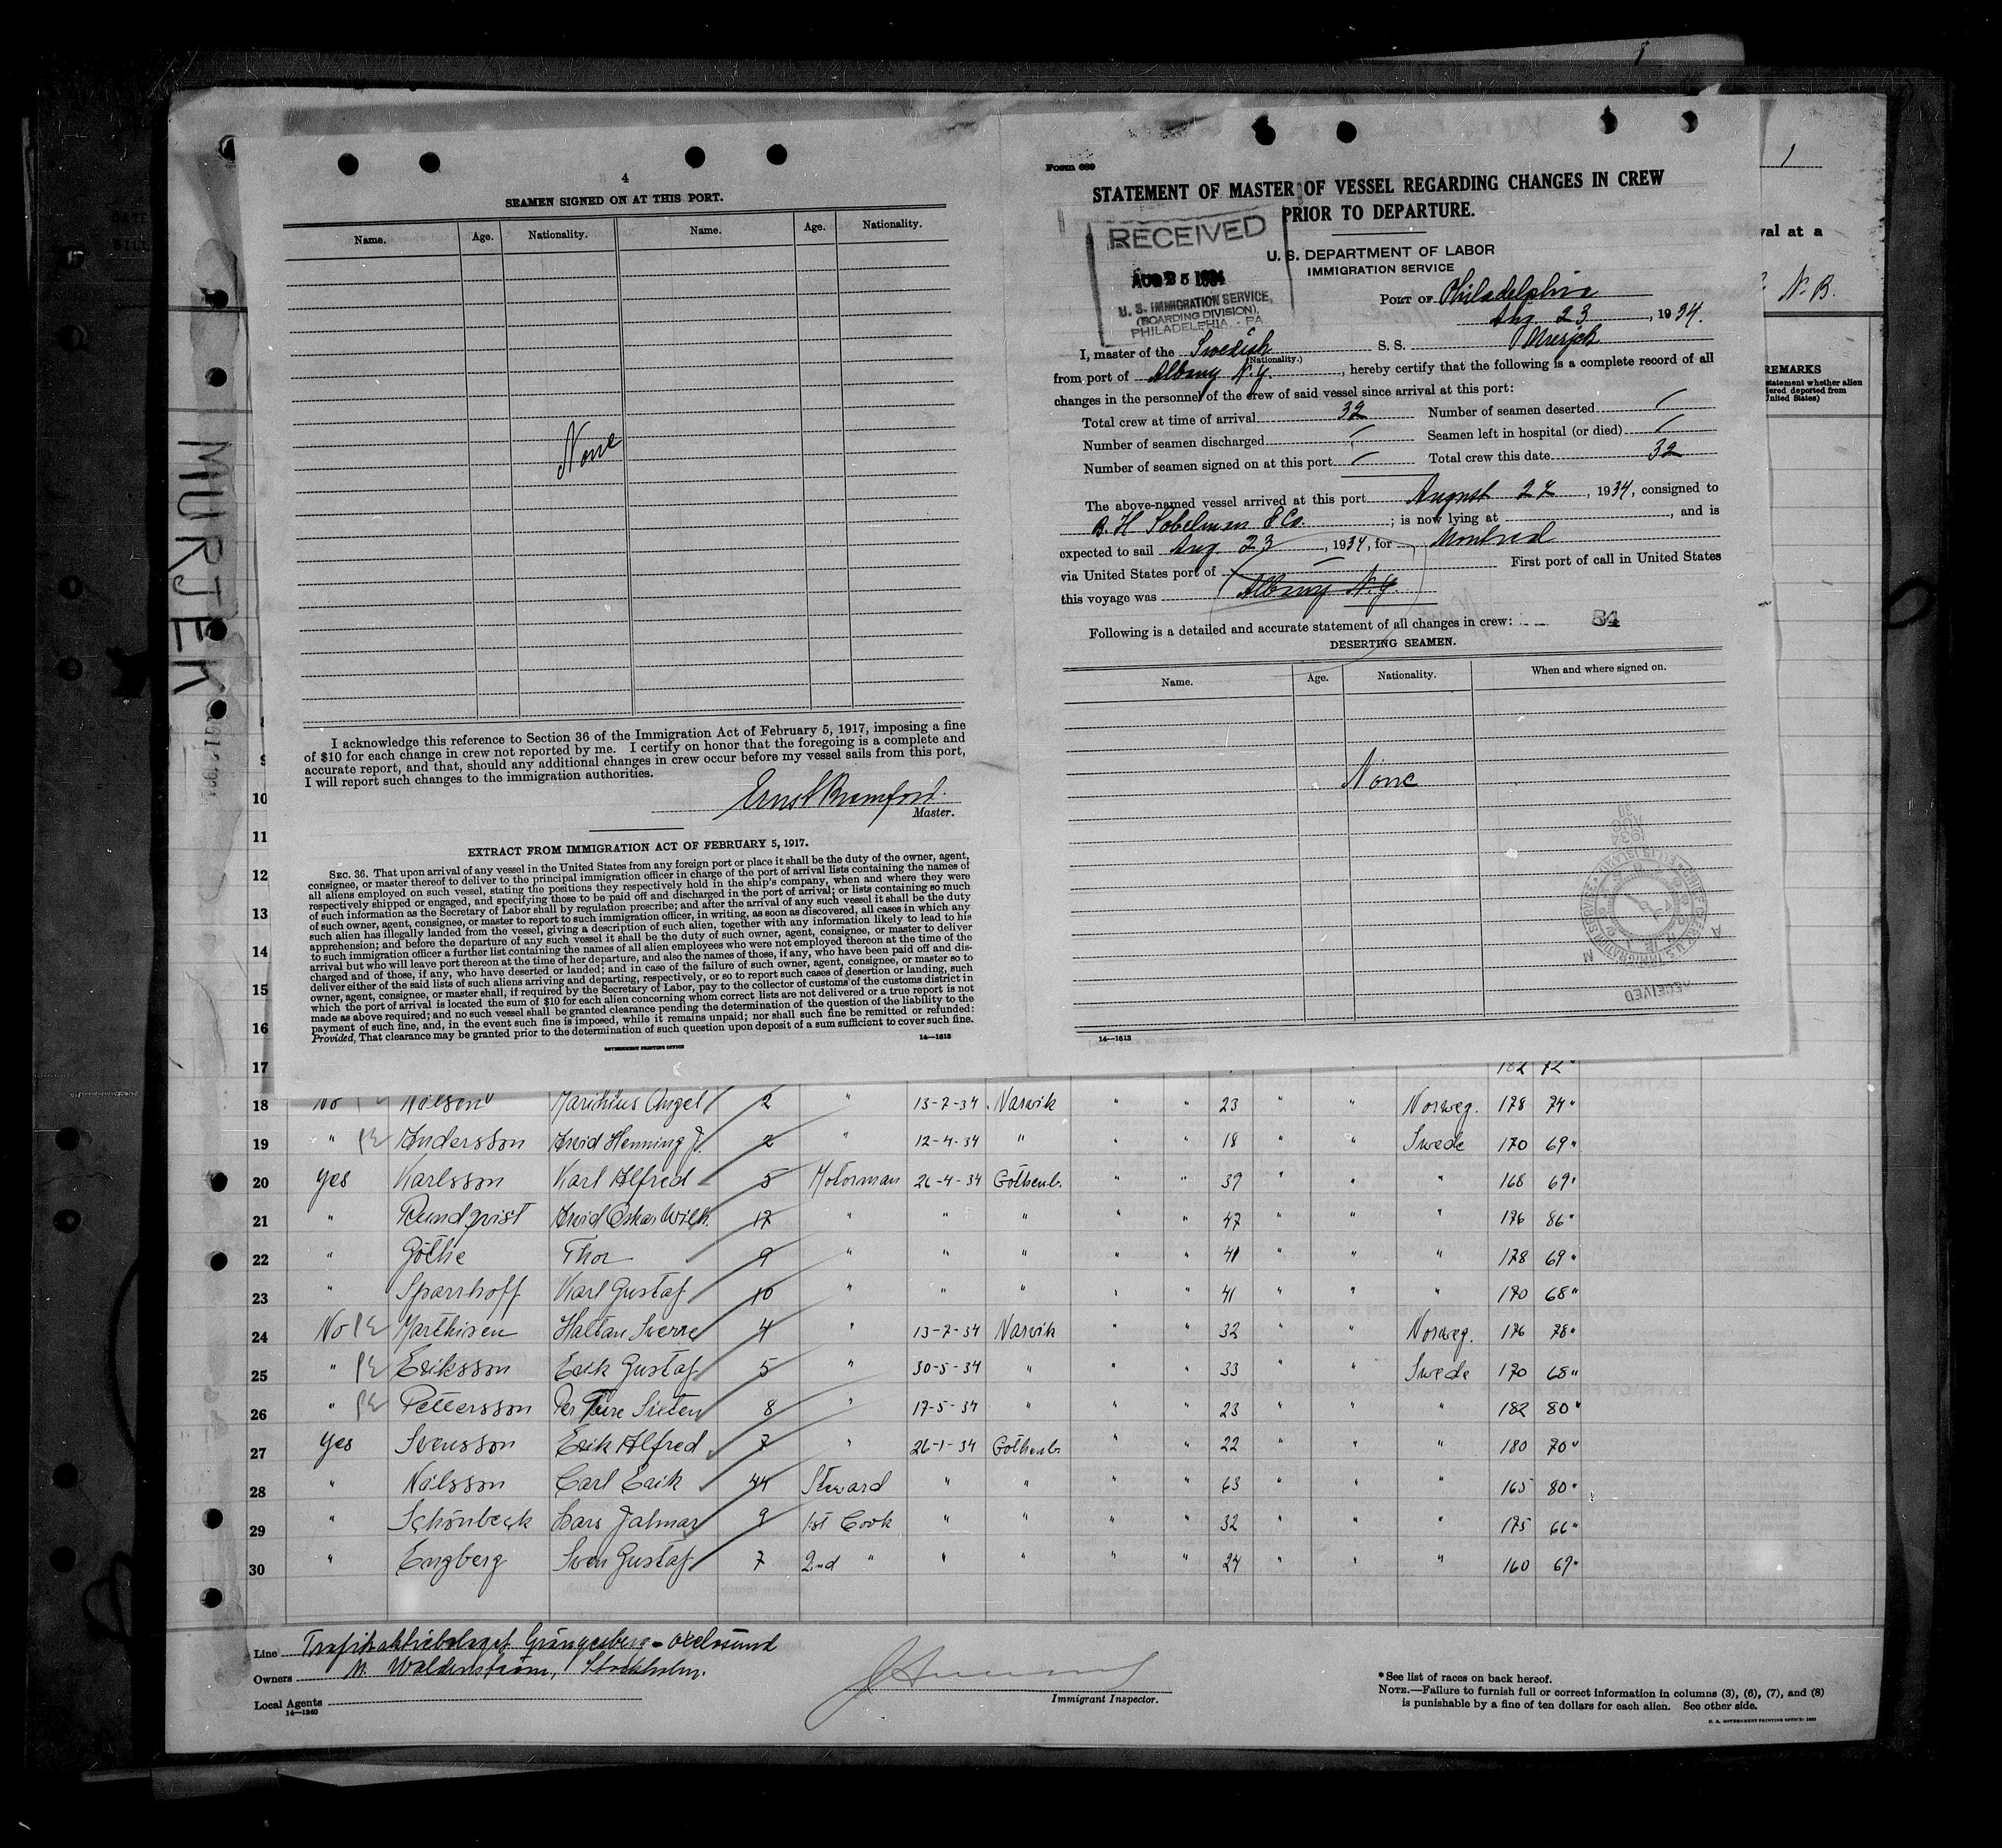 4
SEAMEN SIGNED ON AT THIS PORT.
Name. Age. Nationality. Name. Age. Nationality.
None
I acknowledge this reference to Section 36 of the Immigration Act of February 5, 1917, imposing a fine
of $10 for each change in crew not reported by me. I certify on honor that the foregoing is a complete and
accurate report, and that, should any additional changes in crew occur before my vessel sails from this port,
I will report such changes to the immigration authorities.
Master.
EXTRACT FROM IMMIGRATION ACT OF FEBRUARY 5, 1917.
SEC. 36. That upon arrival of any vessel in the United States from any foreign port or place it shall be the duty of the owner, agent,
consignee, or master thereof to deliver to the principal immigration officer in charge of the port of arrival lists containing the names of
all aliens employed on such vessel, stating the positions they respectively hold in the ship's company, when and where they were
respectively shipped or engaged, and specifying those to be paid off and discharged in the port of arrival; or lists containing so much
of such information as the Secretary of Labor shall by regulation prescribe; and after the arrival of any such vessel it shall be the duty
of such owner, agent, consignee, or master to report to such immigration officer, in writing, as soon as discovered, all cases in which any
such alien has illegally landed from the vessel, giving a description of such alien, together with any information likely to lead to his
apprehension; and before the departure of any such vessel it shall be the duty of such owner, agent, consignee, or master to deliver
to such immigration officer a further list containing the names of all alien employees who were not employed thereon at the time of the
arrival but who will leave port thereon at the time of her departure, and also the names of those, if any, who have been paid off and dis-
charged and of those, if any, who have deserted or landed; and in case of the failure of such owner, agent, consignee, or master so to
deliver either of the said lists of such aliens arriving and departing, respectively, or so to report such cases of desertion or landing, such
owner, agent, consignee, or master shall, if required by the Secretary of Labor, pay to the collector of customs of the customs district in
which the port of arrival is located the sum of $10 for each alien concerning whom correct lists are not delivered or a true report is not
made as above required; and no such vessel shall be granted clearance pending the determination of the question of the liability to the
payment of such fine, and, in the event such fine is imposed, while it remains unpaid; nor shall such fine be remitted or refunded:
Provided, That clearance may be granted prior to the determination of such question upon deposit of a sum sufficient to cover such fine.
GOVERNMENT PRINTING OFFICE 14—1613
Form 689
STATEMENT OF MASTER OF VESSEL REGARDING CHANGES IN CREW
PRIOR TO DEPARTURE.
RECEIVED
U. S. IMMIGRATION SERVICE,
(BOARDING DIVISION),
PHILADELPHIA, - PA
U. S. DEPARTMENT OF LABOR
IMMIGRATION SERVICE
PORT OF Philadelphia
Aug. 23, 1934.
I, master of the Swedish S. S. Murjek
(Nationality.)
from port of Albany N.Y., hereby certify that the following is a complete record of all
changes in the personnel of the crew of said vessel since arrival at this port:
Total crew at time of arrival 32 Number of seamen deserted /
Number of seamen discharged / Seamen left in hospital (or died) /
Number of seamen signed on at this port / Total crew this date 32
The above-named vessel arrived at this port August 22, 1934, consigned to
B. H Sobelman & Co. ; is now lying at , and is
expected to sail Aug. 23, 1934, for Montreal
via United States port of — First port of call in United States
this voyage was Albany N.Y.
Following is a detailed and accurate statement of all changes in crew: 84
DESERTING SEAMEN.
Name. Age. Nationality. When and where signed on.
None
14—1613
1
val at a
N. B.
REMARKS
statement whether alien
dered deported from
United States)
MURJEK
10
11
12
13
14
15
16
17 182 72"
18 No Nilsen Marthius Angel 2 " 13-7-34 Narvik " " 23 " " Norweg. 178 74"
19 " Andersson Arvid Henning J. 2 " 12-4-34 " " " 18 " " Swede 170 69"
20 yes Karlsson Karl Alfred 5 Motorman 26-4-34 Gothenb. " " 39 " " " 168 69"
21 " Rundqvist Arvid Oskar Wilh. 17 " " " " " 47 " " " 176 86"
22 " Göthe Thor 9 " " " " " 41 " " " 178 69"
23 " Sparrhoff Karl Gustaf 10 " " " " " 41 " " " 170 68"
24 No Marthisen Haltan Sverre 4 " 13-7-34 Narvik " " 32 " " Norweg. 176 78"
25 " Eriksson Erik Gustaf 5 " 30-5-34 " " " 33 " " Swede 170 68"
26 " Pettersson Per Ture Sixten 8 " 17-5-34 " " " 23 " " " 182 80"
27 yes Svensson Erik Alfred 7 " 26-1-34 Gothenb. " " 22 " " " 180 70"
28 " Nilsson Carl Erik 44 Steward " " " " 63 " " " 165 80"
29 " Schönbeck Lars Jalmar 9 1st Cook " " " " 32 " " " 175 66"
30 " Engberg Sven Gustaf 7 2nd " " " " " 24 " " " 160 69"
Line Trafikaktiebolaget Grängesberg-Oxelösund
Owners M. Waldenström, Stockholm.
Local Agents
14—1240
Immigrant Inspector.
*See list of races on back hereof.
NOTE.—Failure to furnish full or correct information in columns (3), (6), (7), and (8)
is punishable by a fine of ten dollars for each alien. See other side.
U. S. GOVERNMENT PRINTING OFFICE: